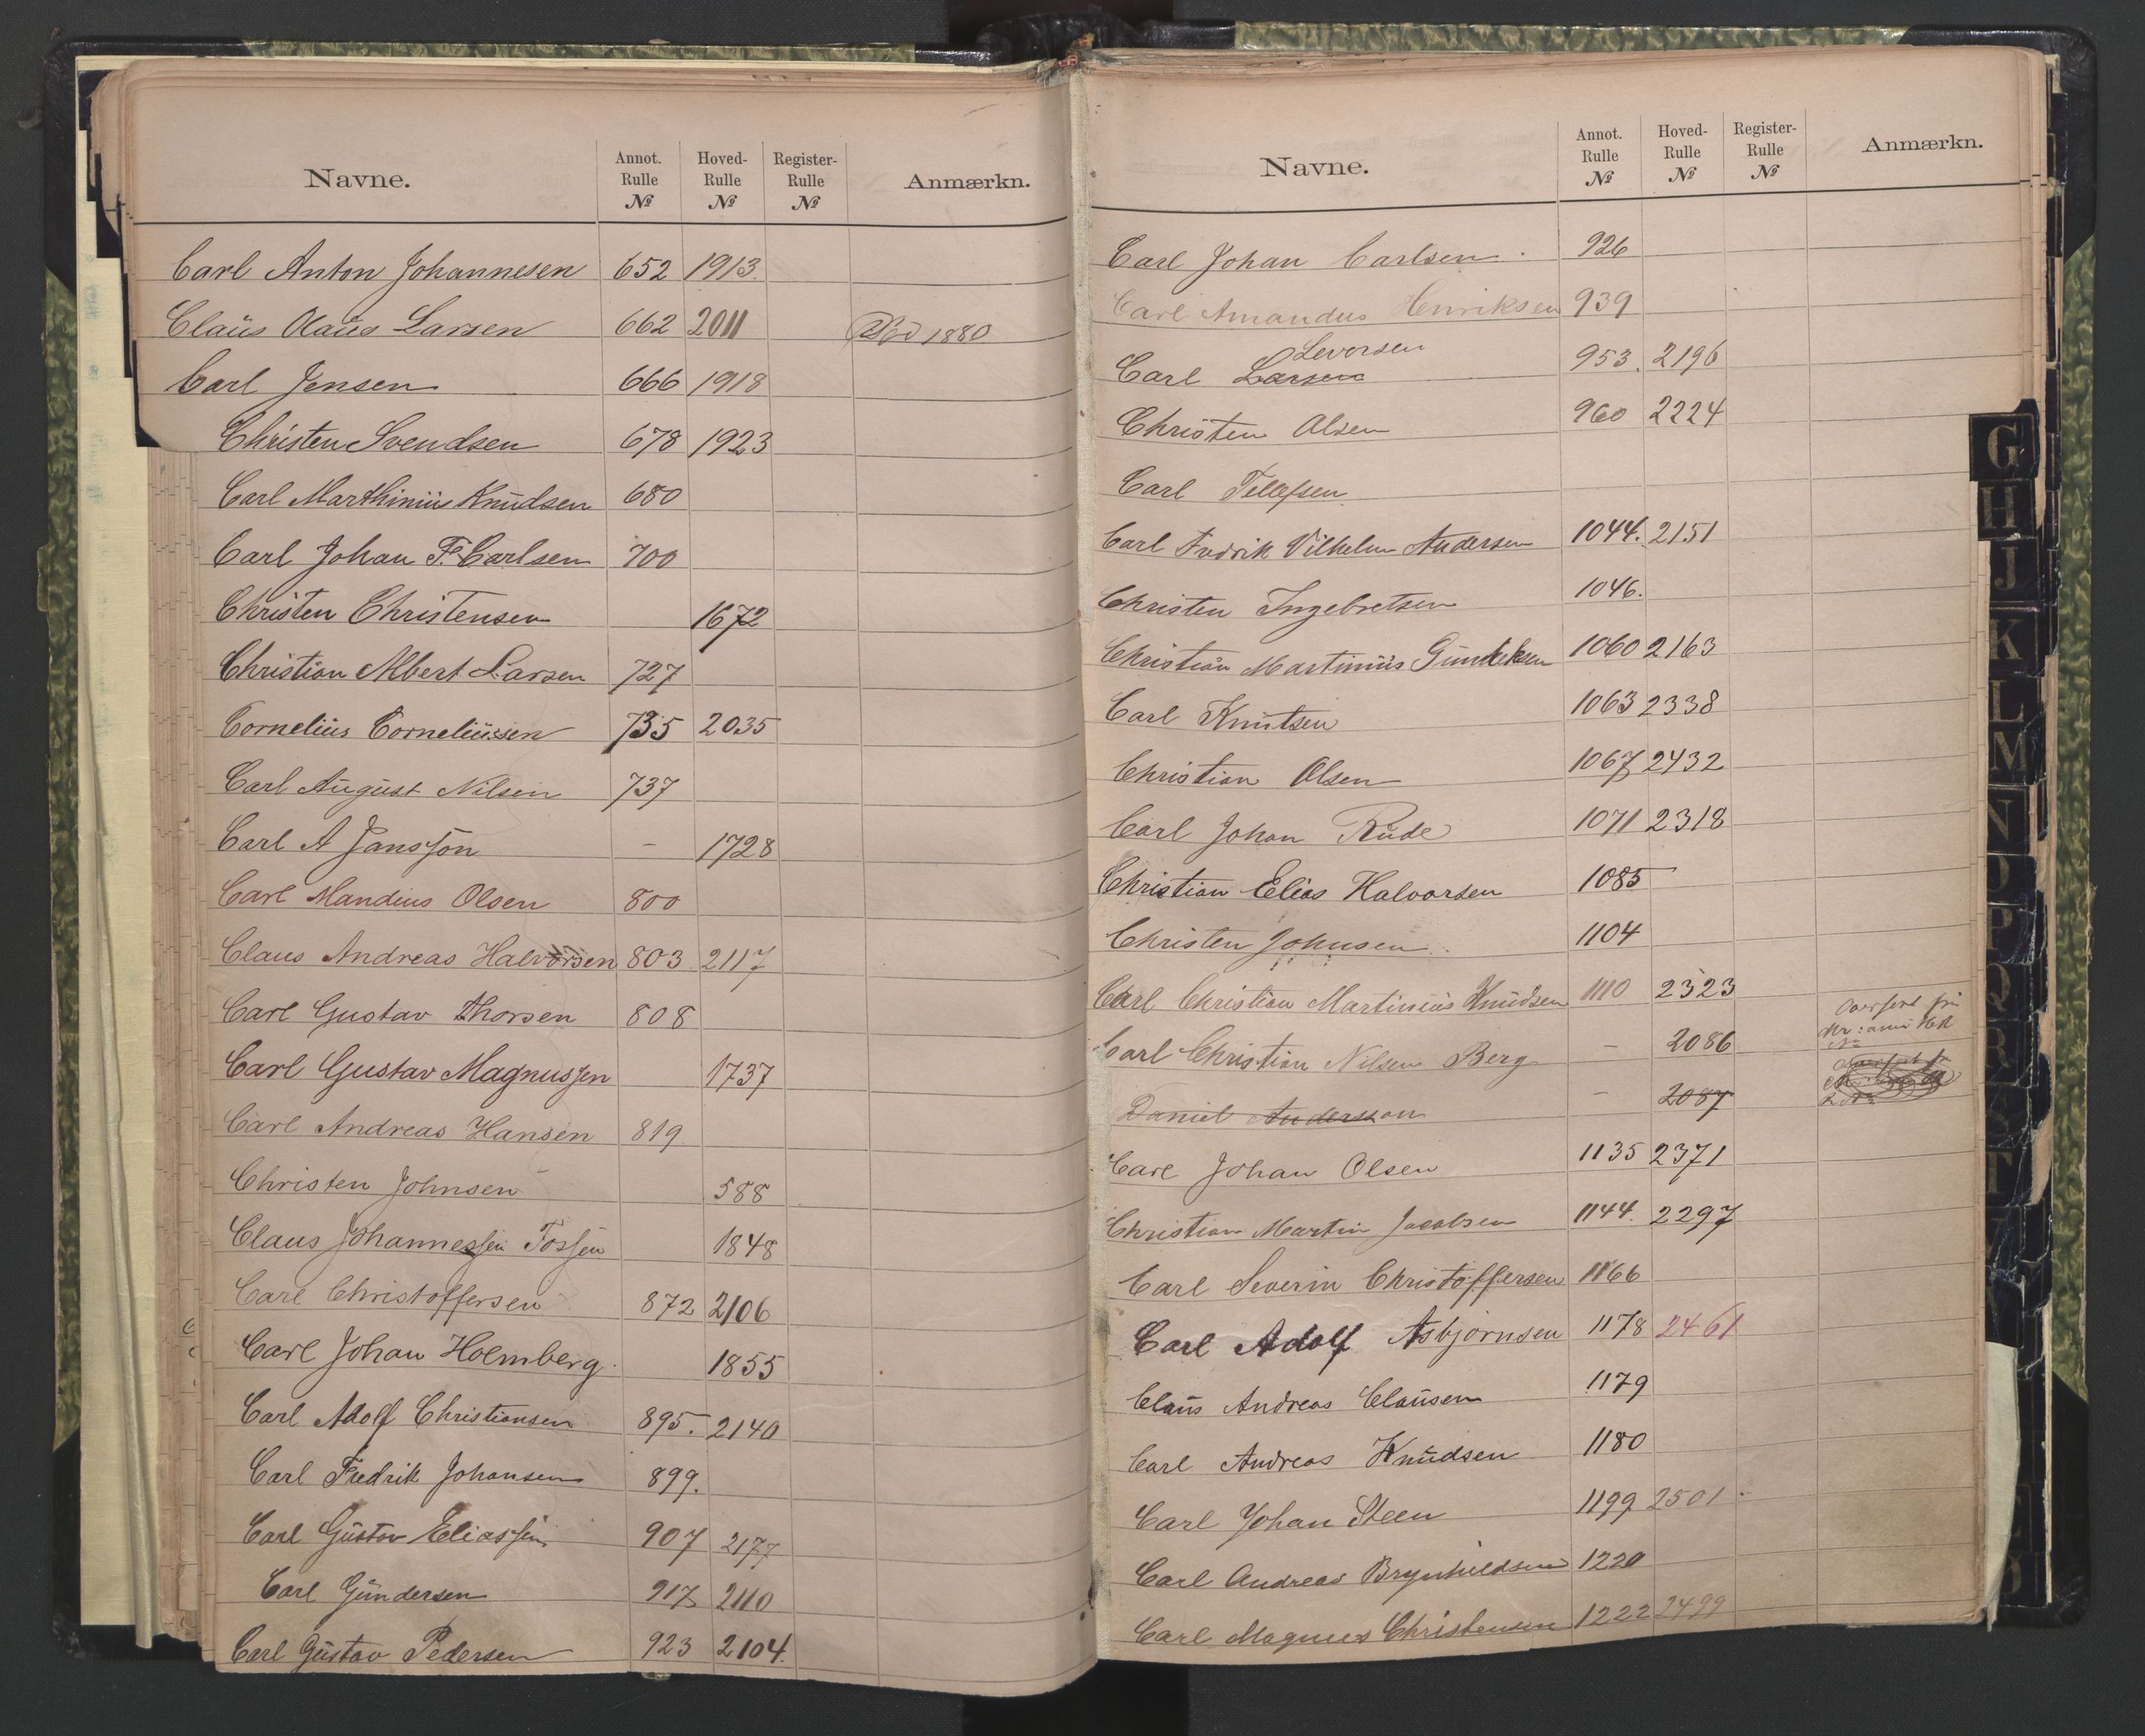 Navne. Annot. Rulle № Hoved-Rulle № Register-Rulle № Anmærkn.
Carl Anton Johannesen 652 1913
Claus Olaus Larsen 662 2011 Død 1880
Carl Jensen 666 1918
Christen Svendsen 678 1923
Carl Marthinius Knudsen 680
Carl Johan F. Carlsen 700
Christen Christensen 1672
Christian Albert Larsen 727
Cornelius Corneliussen 735 2035
Carl August Nilsen 737
Carl A Jansson - 1728
Carl Mandius Olsen 800
Claus Andreas Halvorsen 803 2117
Carl Gustav Thorsen 808
Carl Gustav Magnussen 1737
Carl Andreas Hansen 819
Christen Johnsen 588
Claus Johannessen Fossen 1848
Carl Christoffersen 872 2106
Carl Johan Holmberg 1855
Carl Adolf Christiansen 895. 2140
Carl Fredrik Johansen 899.
Carl Gustav Eliassen 907 2177
Carl Gundersen 917 2110
Carl Gustav Pedersen 923 2104.
Navne. Annot. Rulle № Hoved-Rulle № Register-Rulle № Anmærkn.
Carl Johan Carlsen 926
Carl Amandus Henriksen 939
Levorsen
Carl Larsen 953. 2196
Christen Olsen 960 2224
Carl Tellefsen
Carl Fredrik Vilhelm Andersen 1044. 2151
Christen Ingebretsen 1046.
Christian Martinius 1060 2163
Carl Knutsen 1063 2338
Christian Olsen 1067 2432
Carl Johan Rude 1071 2318
Christian Elias Halvorsen 1085
Christen Johnsen 1104
Carl Christian Martinius Knudsen 1110 2323
Carl Christian Nilsen Berg - 2086 Overført
Daniel Andersson - 2087
Carl Johan Olsen 1135 2371
Christian Martin Jacobsen 1144. 2297
Carl Severin Christoffersen 1166
Carl Adolf Asbjørnsen 1178 2461
Claus Andreas Clausen 1179
Carl Andreas Knudsen 1180
Carl Johan Steen 1199 2501
Carl Andreas Brynhildsen 1220
Carl Magnus Christensen 1222 2499
G
H
J
K
L
M
N
O
P
Q
R
S
T
V